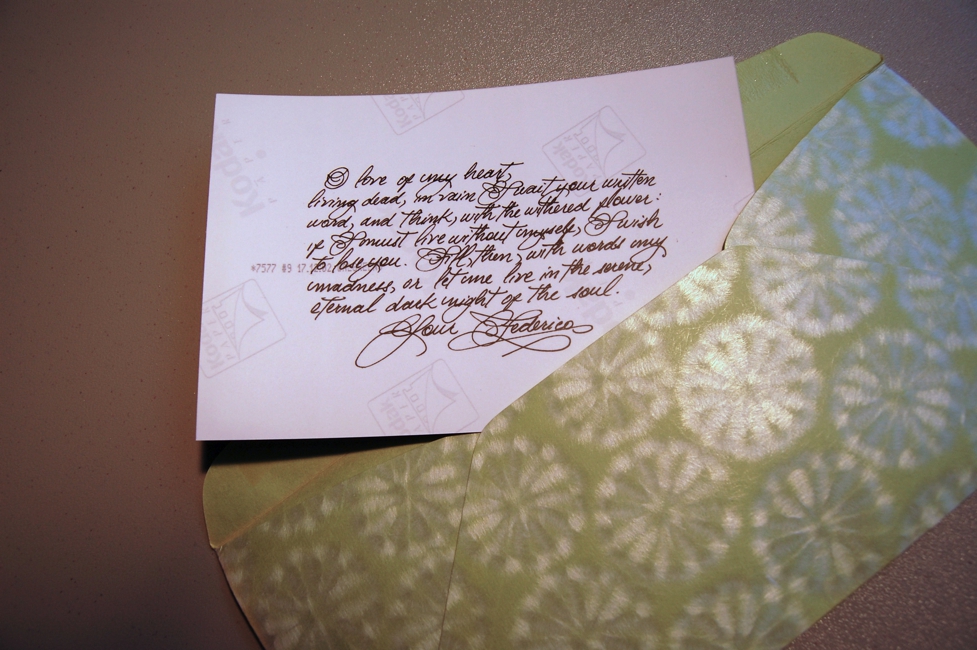 O love of my heart,
living dead, in vain I wait your written
word, and think, with the withered flower:
if I must live without myself, I wish
to lose you. Fill, then, with words my
madness, or let me live in the serene,
eternal dark night of the soul.
Your Federico
Kodak
Kodak
Kodak
Kodak
Kodak